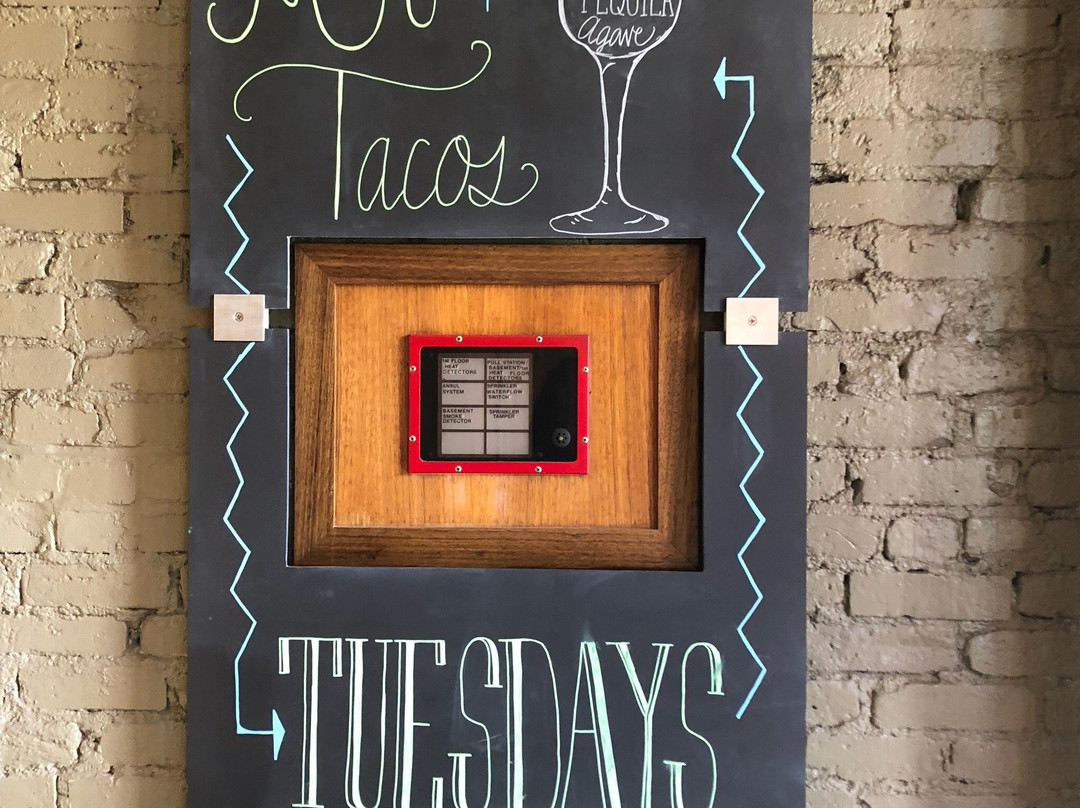 TEQUILA
Agave
Tacos
1st FLOOR
HEAT
DETECTORS
PULL STATION
BASEMENT/1st
HEAT FLOOR
DETECTORS
ANSUL
SYSTEM
SPRINKLER
WATERFLOW
SWITCH
BASEMENT
SMOKE
DETECTOR
SPRINKLER
TAMPER
TUESDAYS